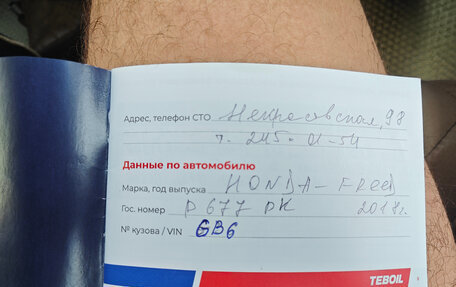 Адрес, телефон СТО Некрасовская, 98
т. 245-01-54
Данные по автомобилю
Марка, год выпуска HONDA-FREED
Гос. номер р 677 рк 2018г.
№ кузова / VIN GB6
TEBOIL